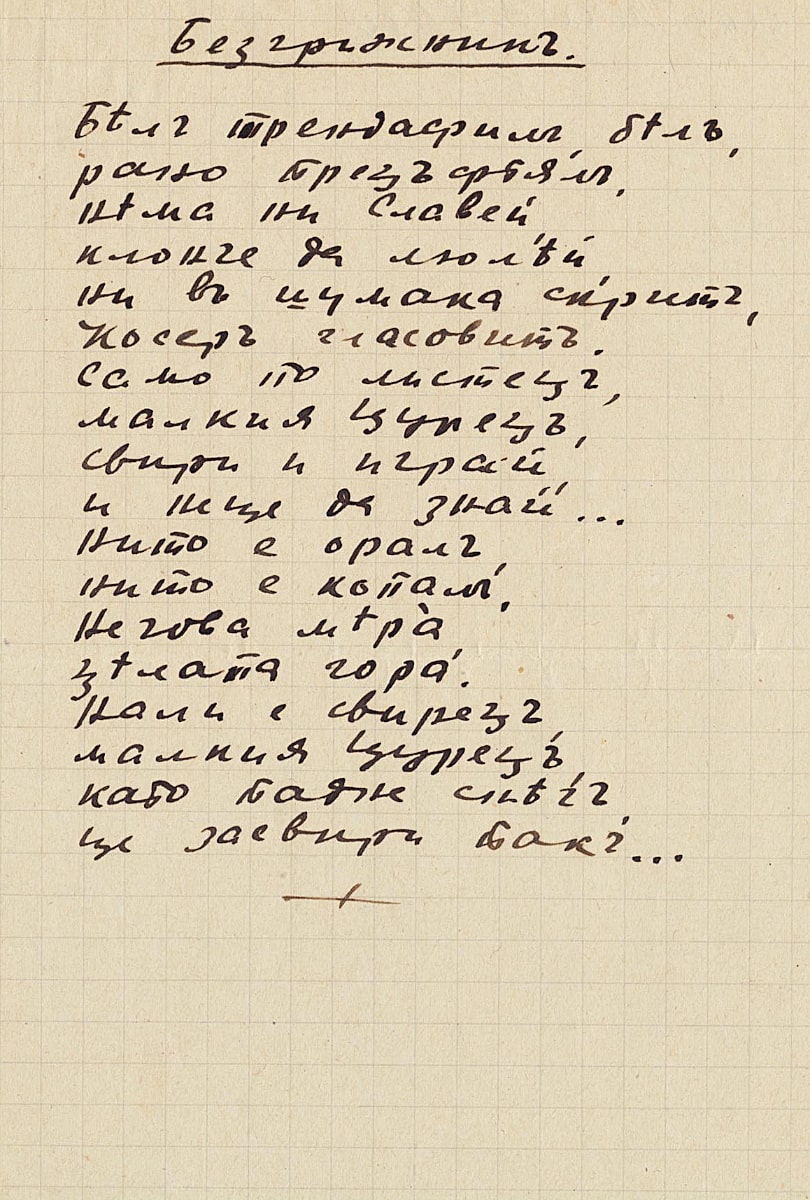 Безгрижникъ.
Бѣлъ трендафилъ, бѣлъ,
рано прецъфтялъ,
нѣма ни Славей,
клонче да люлѣй,
ни въ шумака скритъ,
Косеръ гласовитъ.
Само по листецъ,
малкия Щурецъ,
свири и играй,
и неще да знай...
Нито е оралъ,
нито е копалъ,
Негова мѣра
цѣлата гора.
Нали е свирецъ,
малкия Щурецъ,
като падне снѣгъ,
ще засвири пакъ...